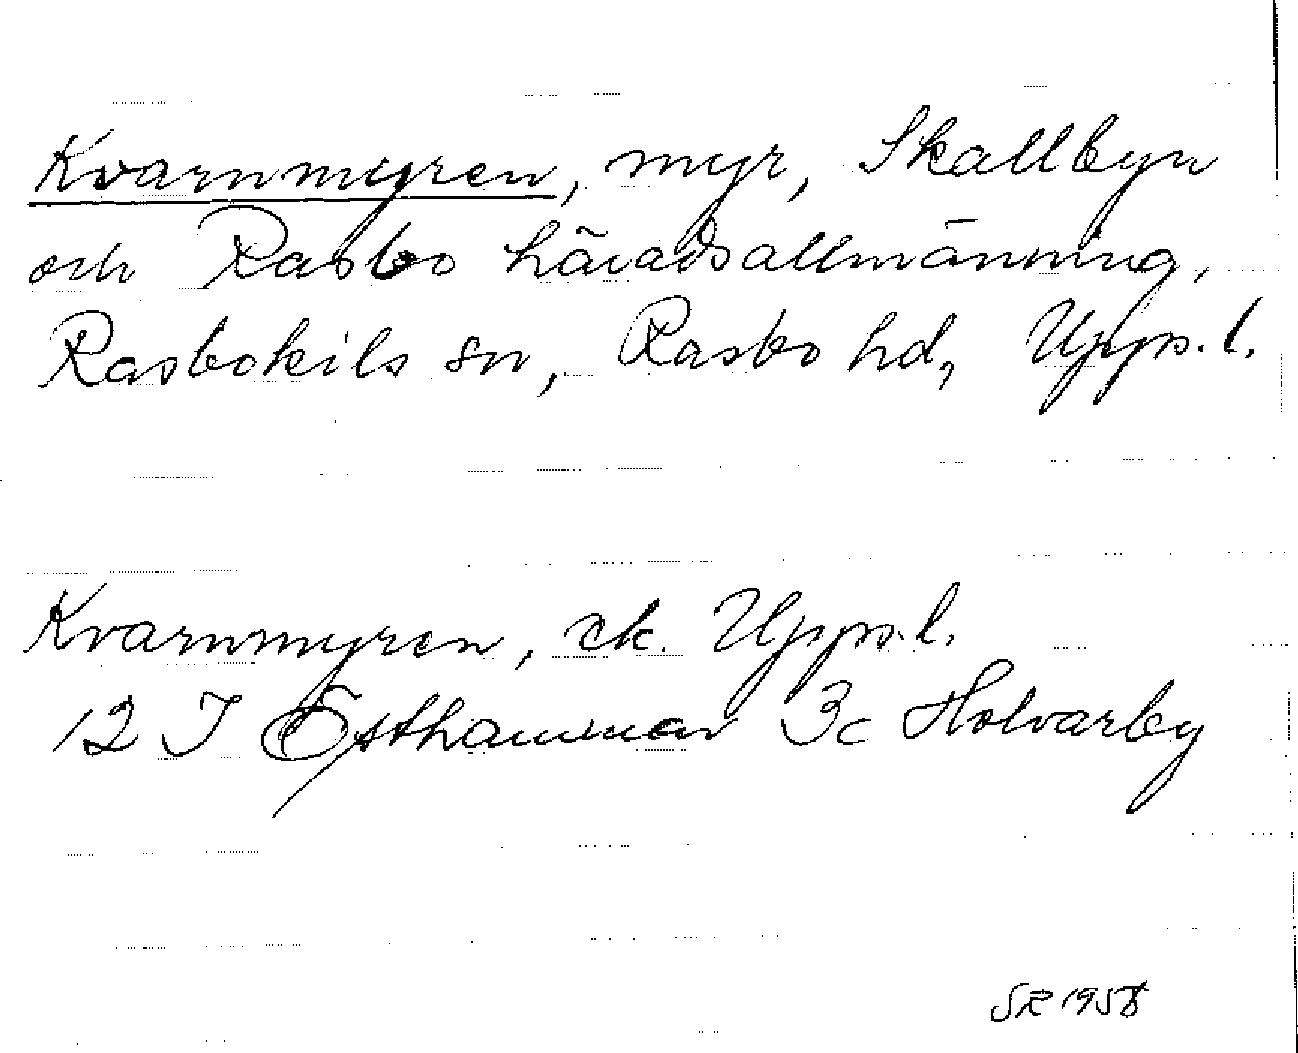 Kvarnmyren, myr, Skallbyn
och Rasbo häradsallmänning,
Rasbokils sn, Rasbo hd, Upps. l.
Kvarnmyren, ek. Upps. l.
12 I Östhammar 3c Holvarby
SR 1958